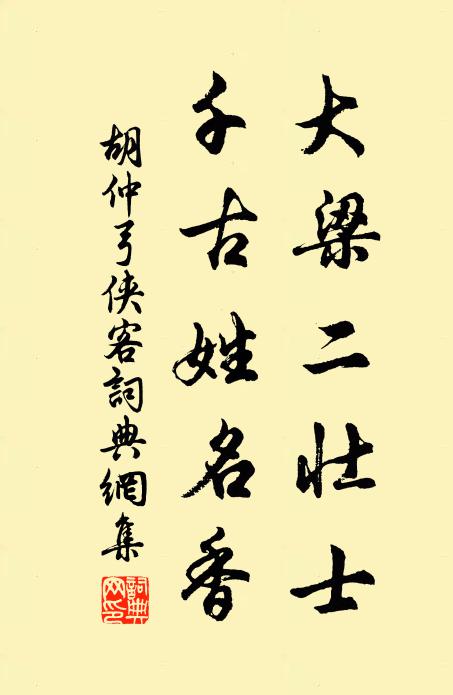 大梁二壮士
千古姓名香
胡仲弓俠客詞典網集